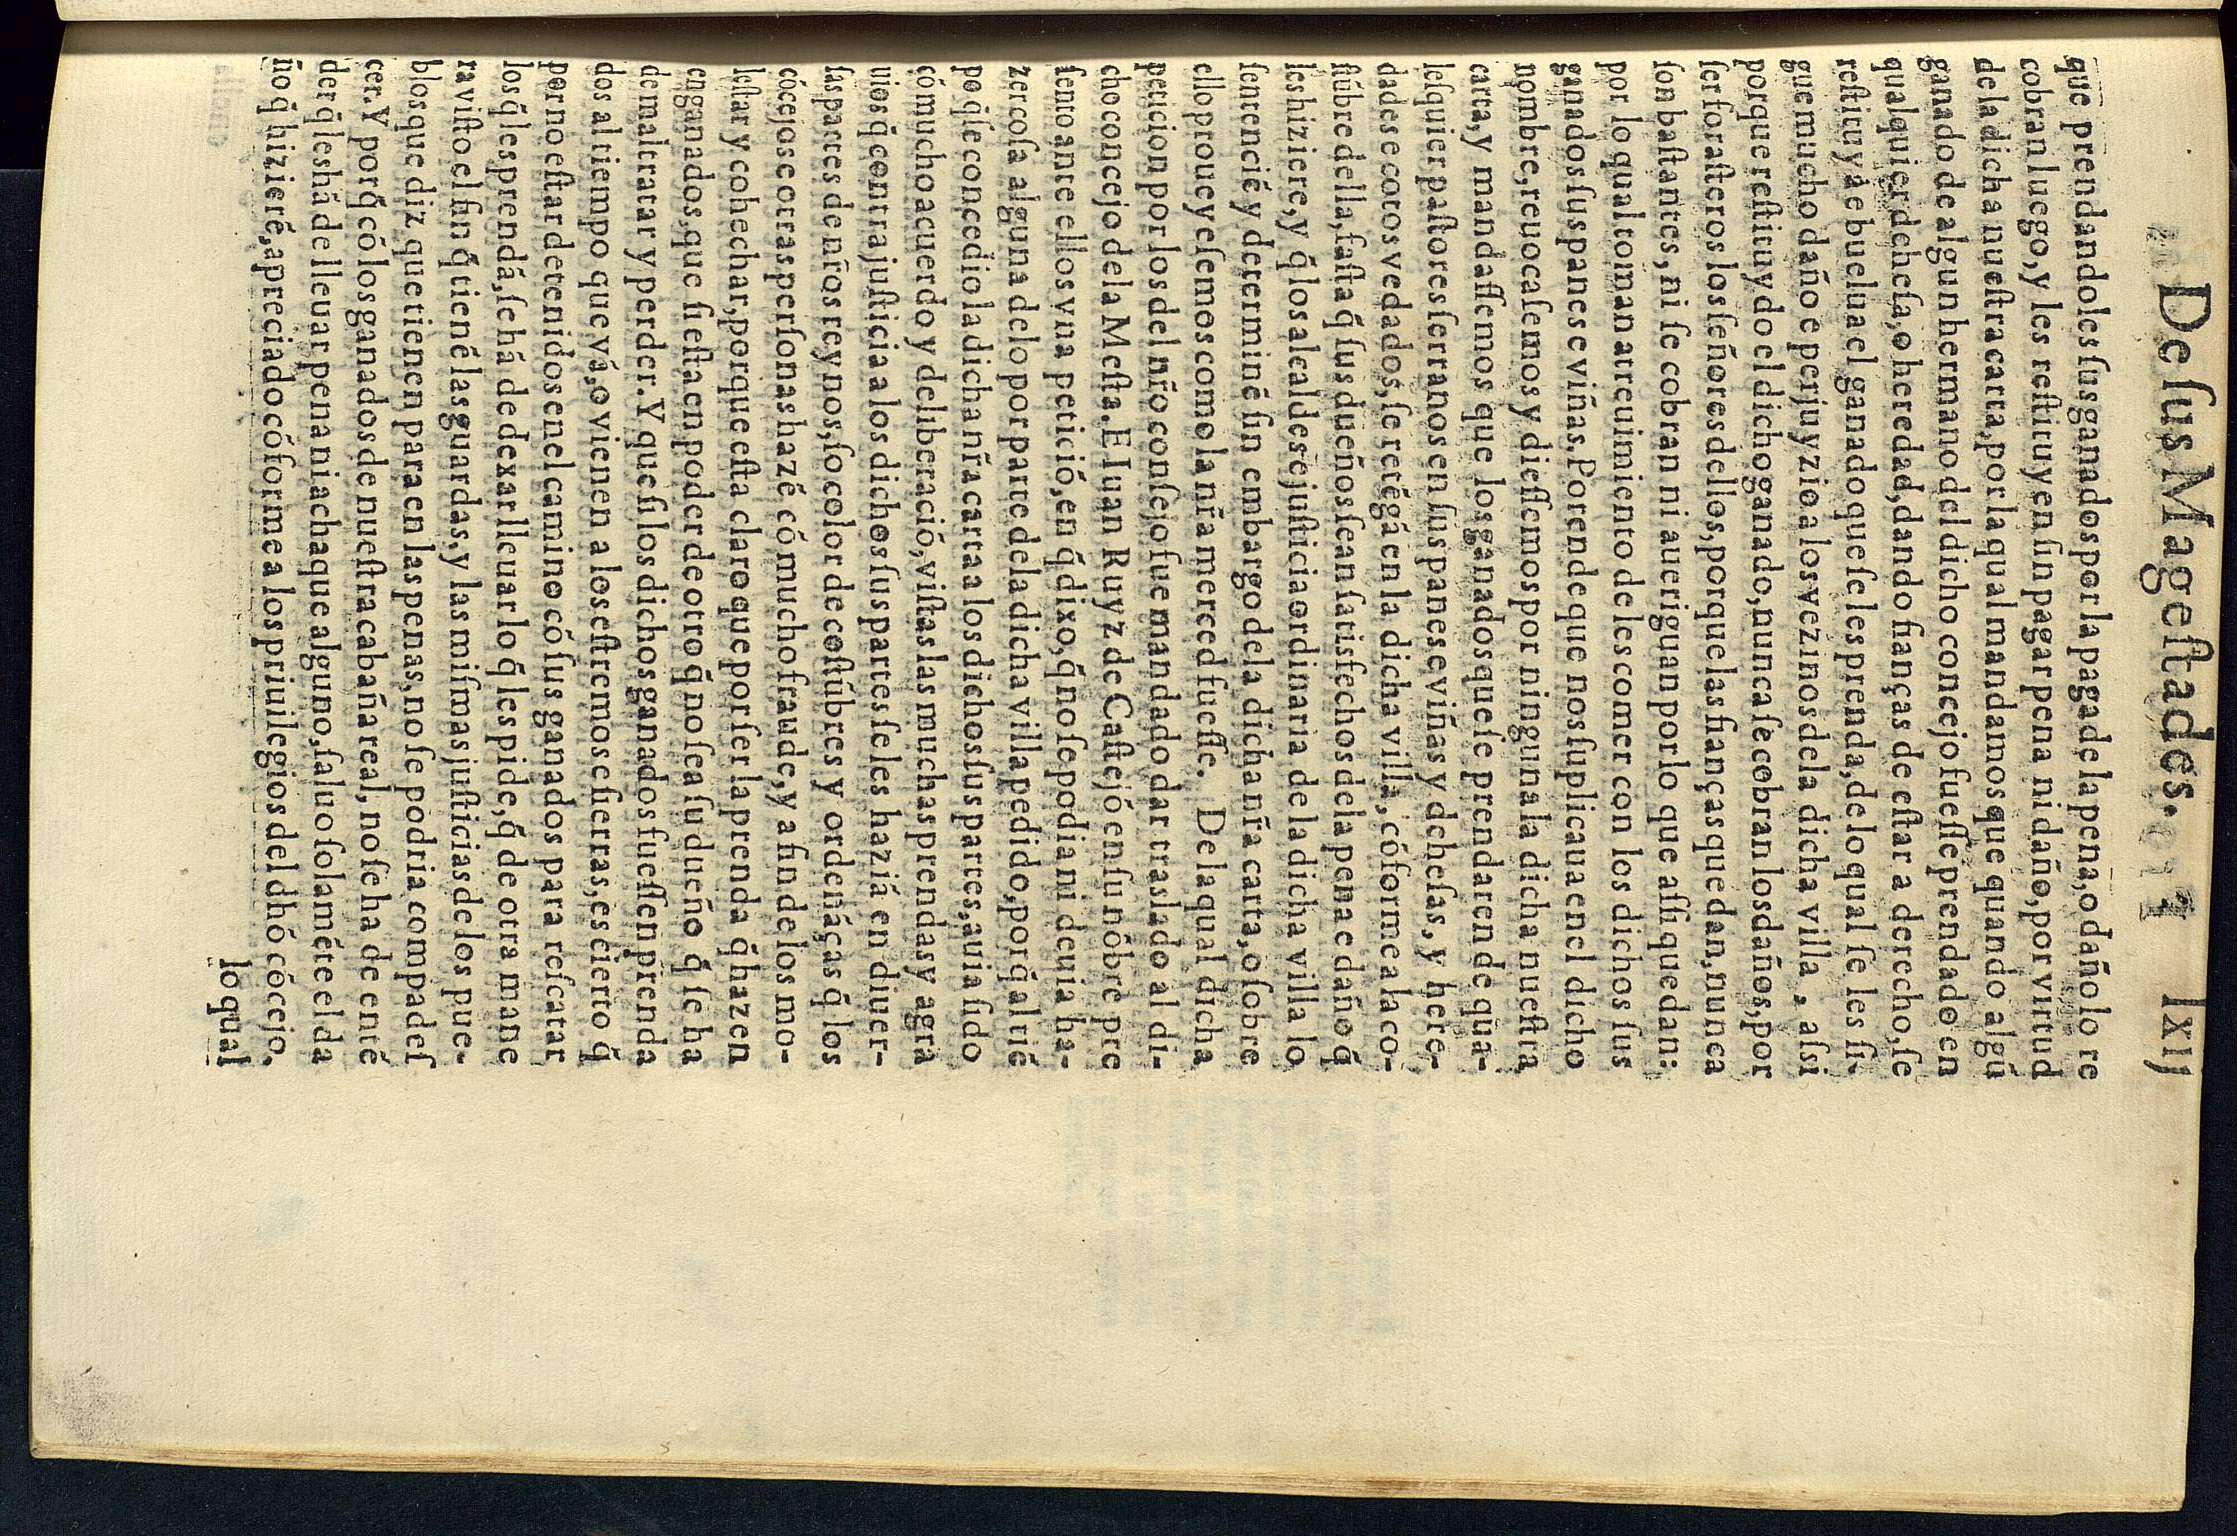 De ſus Mageſtades. lxij
que prendandoles ſus ganados por la paga de la pena, o daño lo re
cobran luego, y les reſtituyen ſin pagar pena ni daño, por virtud
de la dicha nueſtra carta, por la qual mandamos que quando algũ
ganado de algun hermano del dicho concejo fueſſe prendado en
qualquier deheſa, o heredad, dando fianças de eſtar a derecho, ſe
reſtituya e buelua el ganado que ſe les prenda, de lo qual ſe les ſi-
gue mucho daño e perjuyzio a los vezinos de la dicha villa, aſsi
porque reſtituydo el dicho ganado, nunca ſe cobran los daños, por
ſer foraſteros los ſeñores dellos, porque las fianças que dan, nunca
ſon baſtantes, ni ſe cobran ni aueriguan por lo que aſſi quedan:
por lo qual toman atreuimiento de les comer con los dichos ſus
ganados ſus panes e viñas. Porende que nos ſuplicaua en el dicho
nombre, reuocaſemos y dieſſemos por ninguna la dicha nueſtra
carta, y mandaſſemos que los ganados que ſe prendaren de qua-
leſquier paſtores ſerranos en ſus panes e viñas y deheſas, y here-
dades e cotos vedados, ſe retẽgã en la dicha villa, cõforme a la co-
ſtũbre della, faſta q̃ ſus dueños ſean ſatisfechos de la pena e daño q̃
les hiziere, y q̃ los alcaldes e juſticia ordinaria de la dicha villa lo
ſentenciẽ y determinẽ ſin embargo de la dicha nr̃a carta, o ſobre
ello prouey eſemos como la nr̃a merced fueſſe. De la qual dicha
peticion por los del nr̃o conſejo fue mandado dar traslado al di-
cho concejo de la Meſta. E Iuan Ruyz de Caſtejõ en ſu nõbre pre
ſento ante ellos vna peticiõ, en q̃ dixo, q̃ no ſe podia ni deuia ha-
zer coſa alguna de lo por parte de la dicha villa pedido, porq̃ al tiẽ
po q̃ ſe concedio la dicha nr̃a carta a los dichos ſus partes, auia ſido
cõ mucho acuerdo y deliberaciõ, viſtas las muchas prendas y agra
uios q̃ contra juſticia a los dichos ſus partes ſe les haziã en diuer-
ſas partes de nr̃os reynos, ſo color de coſtũbres y ordenãças q̃ los
cõcejos e otras perſonas hazẽ cõ mucho fraude, y a fin de los mo-
leſtar y cohechar, porque eſta claro que por ſer la prenda q̃ hazen
en ganados, que ſi eſta en poder de otro q̃ no ſea ſu dueño q̃ ſe ha
de maltratar y perder. Y que ſi los dichos ganados fueſſen prenda
dos al tiempo que vã, o vienen a los eſtremos e ſierras, es cierto q̃
por no eſtar detenidos en el camino cõ ſus ganados para reſcatar
los q̃ les prendã, ſe hã de dexar lleuar lo q̃ les pidẽ, q̃ de otra mane
ra viſto el fin q̃ tienẽ las guardas, y las miſmas juſticias de los pue-
blos que diz que tienen para en las penas, no ſe podria compadeſ
cer. Y porq̃ cõ los ganados de nueſtra cabaña real, no ſe ha de entẽ
der q̃ les hã de lleuar pena ni achaque alguno, ſaluo ſolamẽte el da
ño q̃ hizierẽ, apreciado cõforme a los priuilegios del dhõ cõcejo.
lo qual